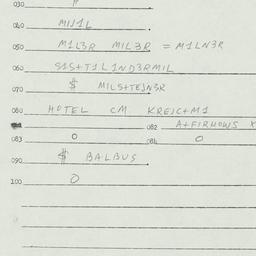 030 11
040 MIJ1L
050 M1L3R MIL3R = M1LN3R
060 S1S+T1L1ND3RMIL
070 $ MILS+TEJN3R
080 HOTEL CM KREJC+M1
082 A+FIRHOWS X
083 0 084 0
090 $ BALBUS
100 0